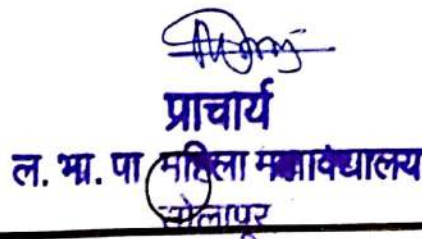 प्राचार्य
ल. भा. पा महिला महाविद्यालय
सोलापूर